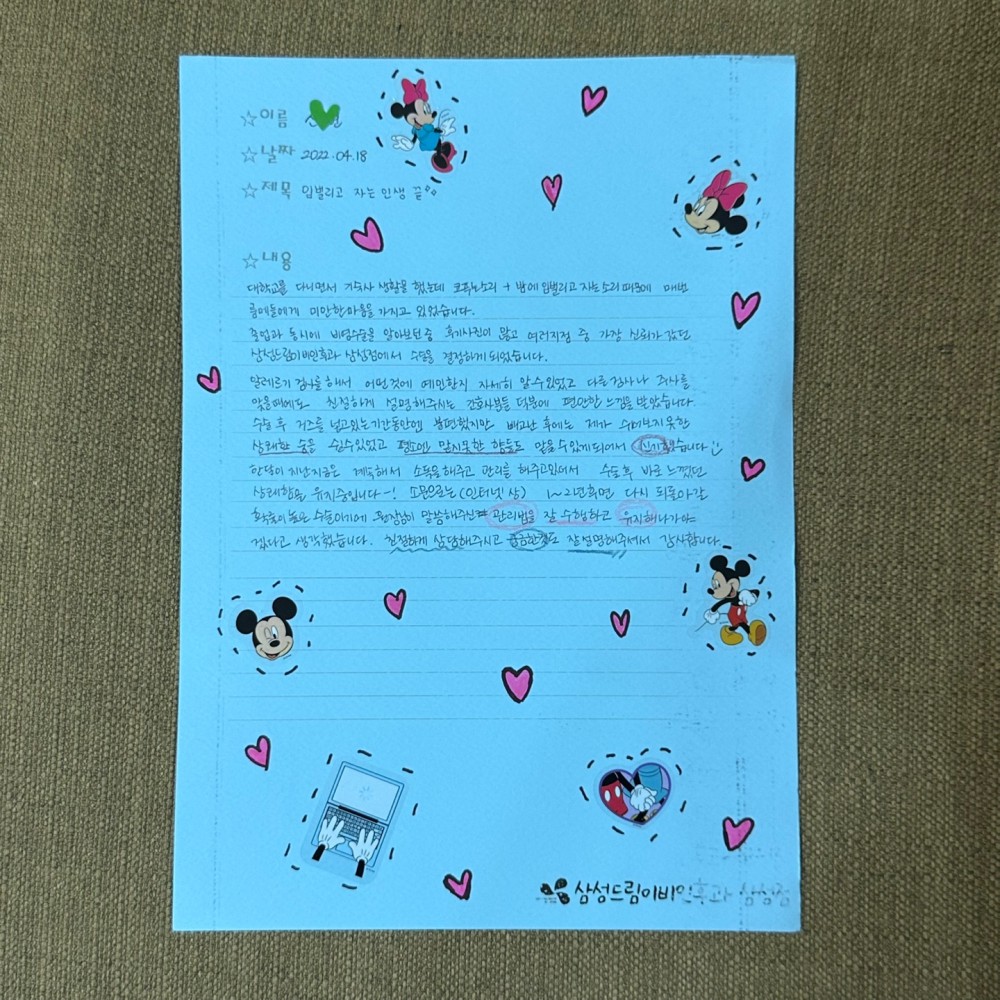 ☆이름
☆날짜 2022.04.18
☆제목 입벌리고 자는 인생 끝
☆내용
대학교를 다니면서 기숙사 생활을 했는데 코푸는소리 + 밤에 입벌리고 자는소리 때문에 매번
룸메들에게 미안한마음을 가지고 있었습니다.
취업과 동시에 비염수술을 알아보던 중 후기사진이 많고 여러지점 중 가장 신뢰가 갔던
삼성드림이비인후과 삼성점에서 수술을 결정하게 되었습니다.
알레르기 검사를 해서 어떤것에 예민한지 자세히 알 수 있었고 다른 검사나 주사를
맞을때에도 친절하게 설명해주시는 간호사분들 덕분에 편안한 느낌을 받았습니다.
수술 후 거즈를 넣고있는기간동안엔 불편했지만 빼고난 후에는 제가 수여보지못한
상쾌한 숨을 쉴수있었고 평소엔 맡지못한 향들도 맡을수있게되어서 신기했습니다
한달이 지난지금은 계속해서 소독을해주고 관리를 해주고있어서 수술후 바로 느꼈던
상쾌함을 유지중입니다~! 소문으로는 (인터넷 상) 1~2년후면 다시 되돌아갈
확률이 높은 수술이기에 원장님이 말씀해주신 관리법을 잘 수행하고 유지해나가야
겠다고 생각했습니다. 친절하게 상담해주시고 궁금한점도 잘설명해주셔서 감사합니다
삼성드림이비인후과 삼성점